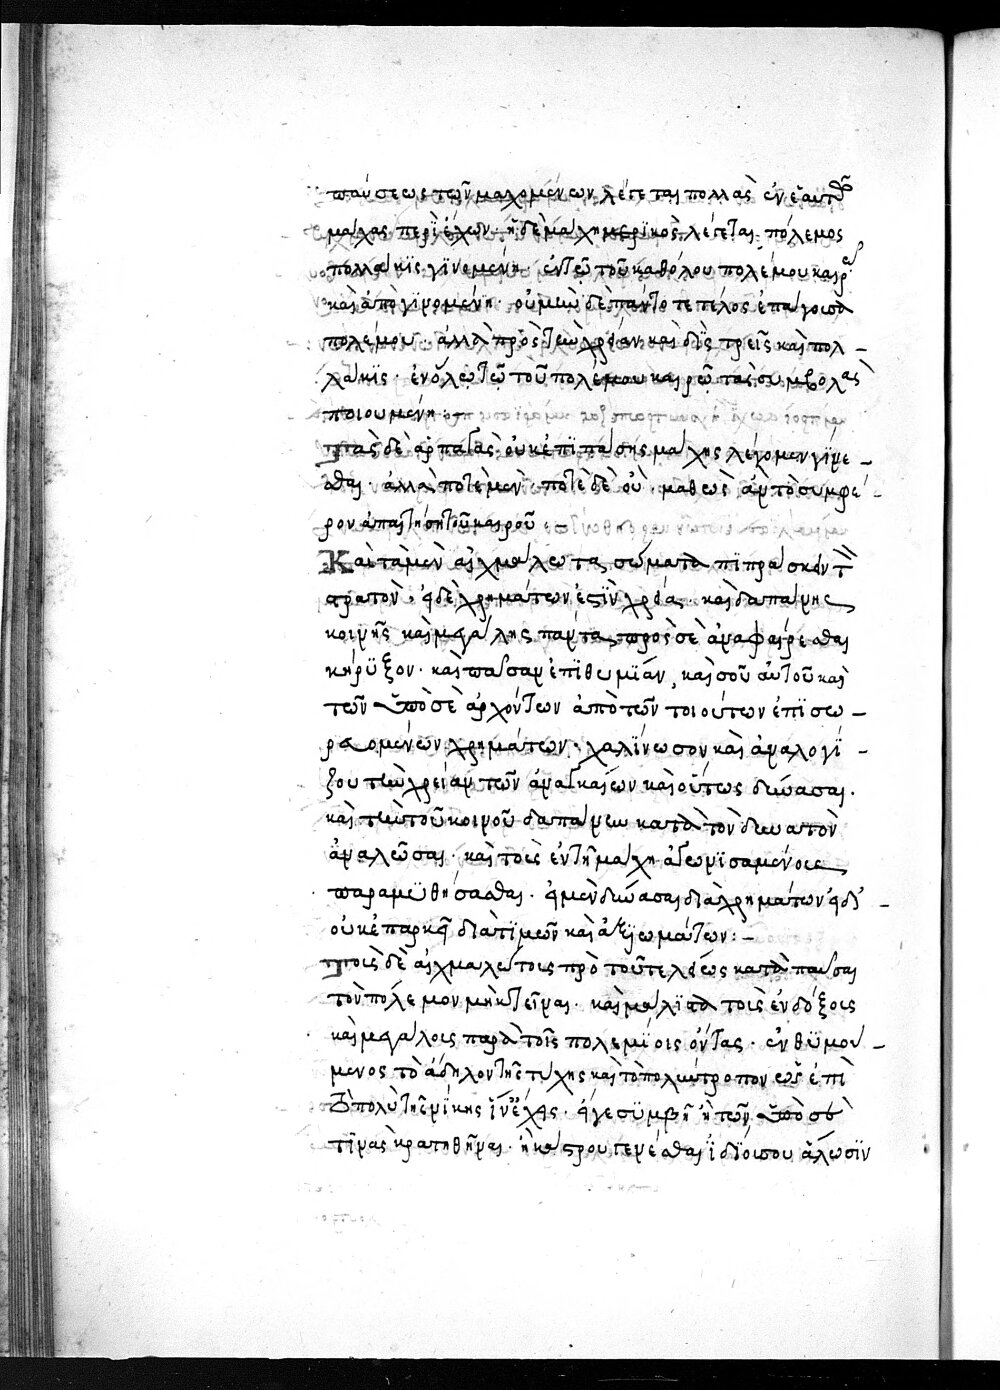 παύσεως τῶν μαχομένων λέγεται πολλὰς ἐν ἑαυτῶ
μάχας περϊέχων· ἡ δὲ μάχη μερϊκὸς λέγεται πόλεμος
πολλάκϊς γϊνομένη ἐν τῶ τοῦ καθόλου πολέμου καιρῶ
καὶ ἀπογϊνομένη· οὐ μὴν δὲ πάντοτε τέλος ἐπάγουσα
πολέμου· ἀλλὰ πρὸς τὴν χρείαν καὶ δὶς τρεῖς καὶ πολ
λάκϊς· ἐν ὅλω τῶ τοῦ πολέμου καιρῶ τὰς συμβολὰς
ποιουμένη·
Τὰς δὲ ἁρπαγὰς οὐκ ἐπῒ πάσης μάχης λέγομεν γίνε
σθαι· ἀλλὰ ποτὲ μὲν ποτὲ δὲ οὐ· καθὼς ἂν τὸ συμφέ
ρον ἀπαιτήση τοῦ καιροῦ:
Καὶ τὰ μὲν αἰχμάλωτα σώματα πϊπράσκειν τ
στρατόν· εἰ δὲ χρημάτων ἐστῒν χρεία· καὶ δαπάνης
κοινῆς καὶ μεγάλης πάντα πρὸς σὲ ἀναφαίρεσθαι
κήρϋξον· καὶ πᾶσαν ἐπϊθυμΐαν, καὶ σοῦ αὐτοῦ καὶ
τῶν ὑπὸ σὲ ἀρχόντων ἀπὸ τῶν τοιούτων ἐπϊσω
ρευομένων χρημάτων· χαλΐνωσον καὶ ἀναλογΐ
ζου τὴν χρείαν τῶν ἀναγκαίων καὶ οὕτως διανάσαι·
καὶ τὴν τοῦ κοινοῦ δαπάνην κατὰ τὸν δυνατὸν
ἀναλῶσαι· καὶ τοὺς ἐν τῆ μάχη ἀγωνϊσαμένους
παραμυθήσασθαι· εἰ μὲν δυνάσαι διὰ χρημάτων εἰ δ'
οὐκ ἐπαρκεῖ διὰ τϊμῶν καὶ ἀξϊωμάτων:
Τοὺς δὲ αἰχμαλώτους πρὸ τοῦ τελείως καταπαῦσαι
τὸν πόλεμον μὴ κτεῖναι· καὶ μάλϊστα τοὺς ἐνδόξους
καὶ μεγάλους παρὰ τοῖς πολεμΐοις ὄντας· ἐνθϋμού
μενος τὸ ἄδηλον τῆς τύχης καὶ τὸ παλίντροπον ὡς ἐπὶ
τὸ πολὺ τῆς νΐκης ἵν' ἔχης· εἴγε συμβῆ ἢ τῶν ὑπὸ σὲ
τϊνὰς κρατηθῆναι· ἢ κάστρου γενέσθαι ϊδΐου σου ἅλωσϊν